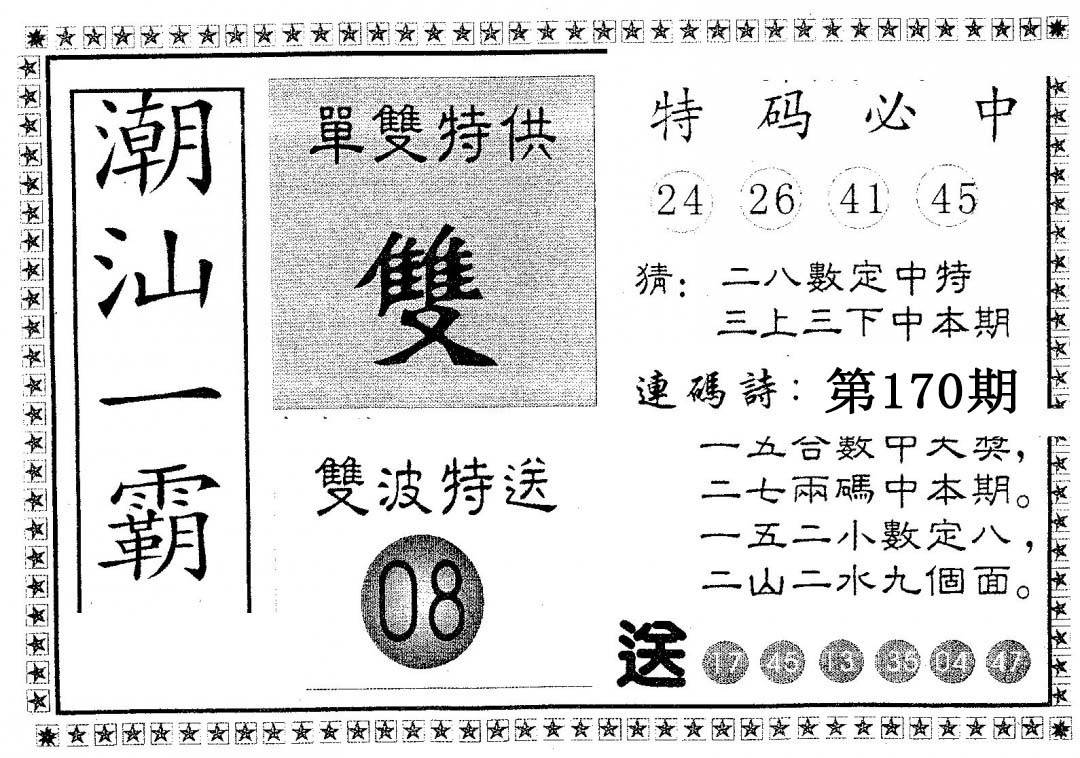 潮汕一霸
單雙特供
雙
雙波特送
08
特码必中
24 26 41 45
猜：二八數定中特
三上三下中本期
連碼詩：第170期
一五合數中大獎，
二七兩碼中本期。
一五二小數定八，
二山二水九個面。
送 17 45 13 35 04 47